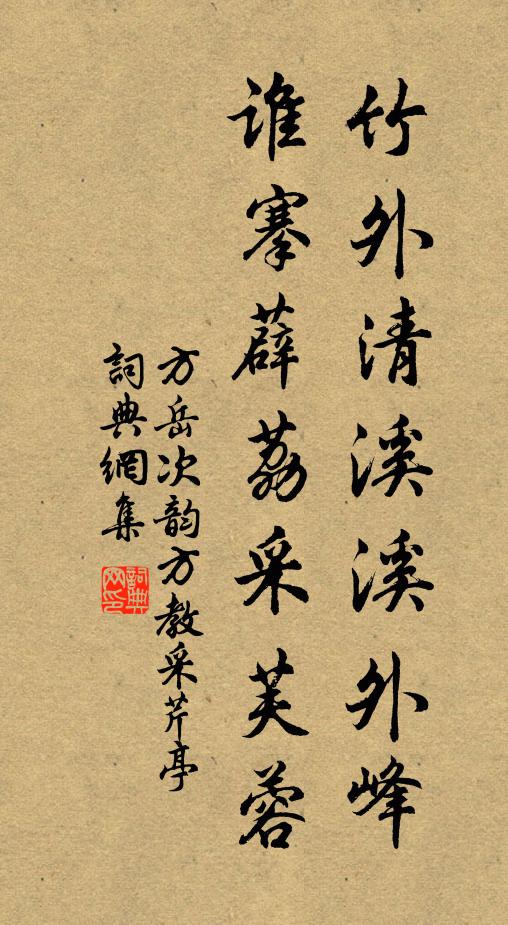 竹外清溪溪外峰
谁搴薜荔采芙蓉
方岳次韵方教采芹亭
詞典網集
詞典网印